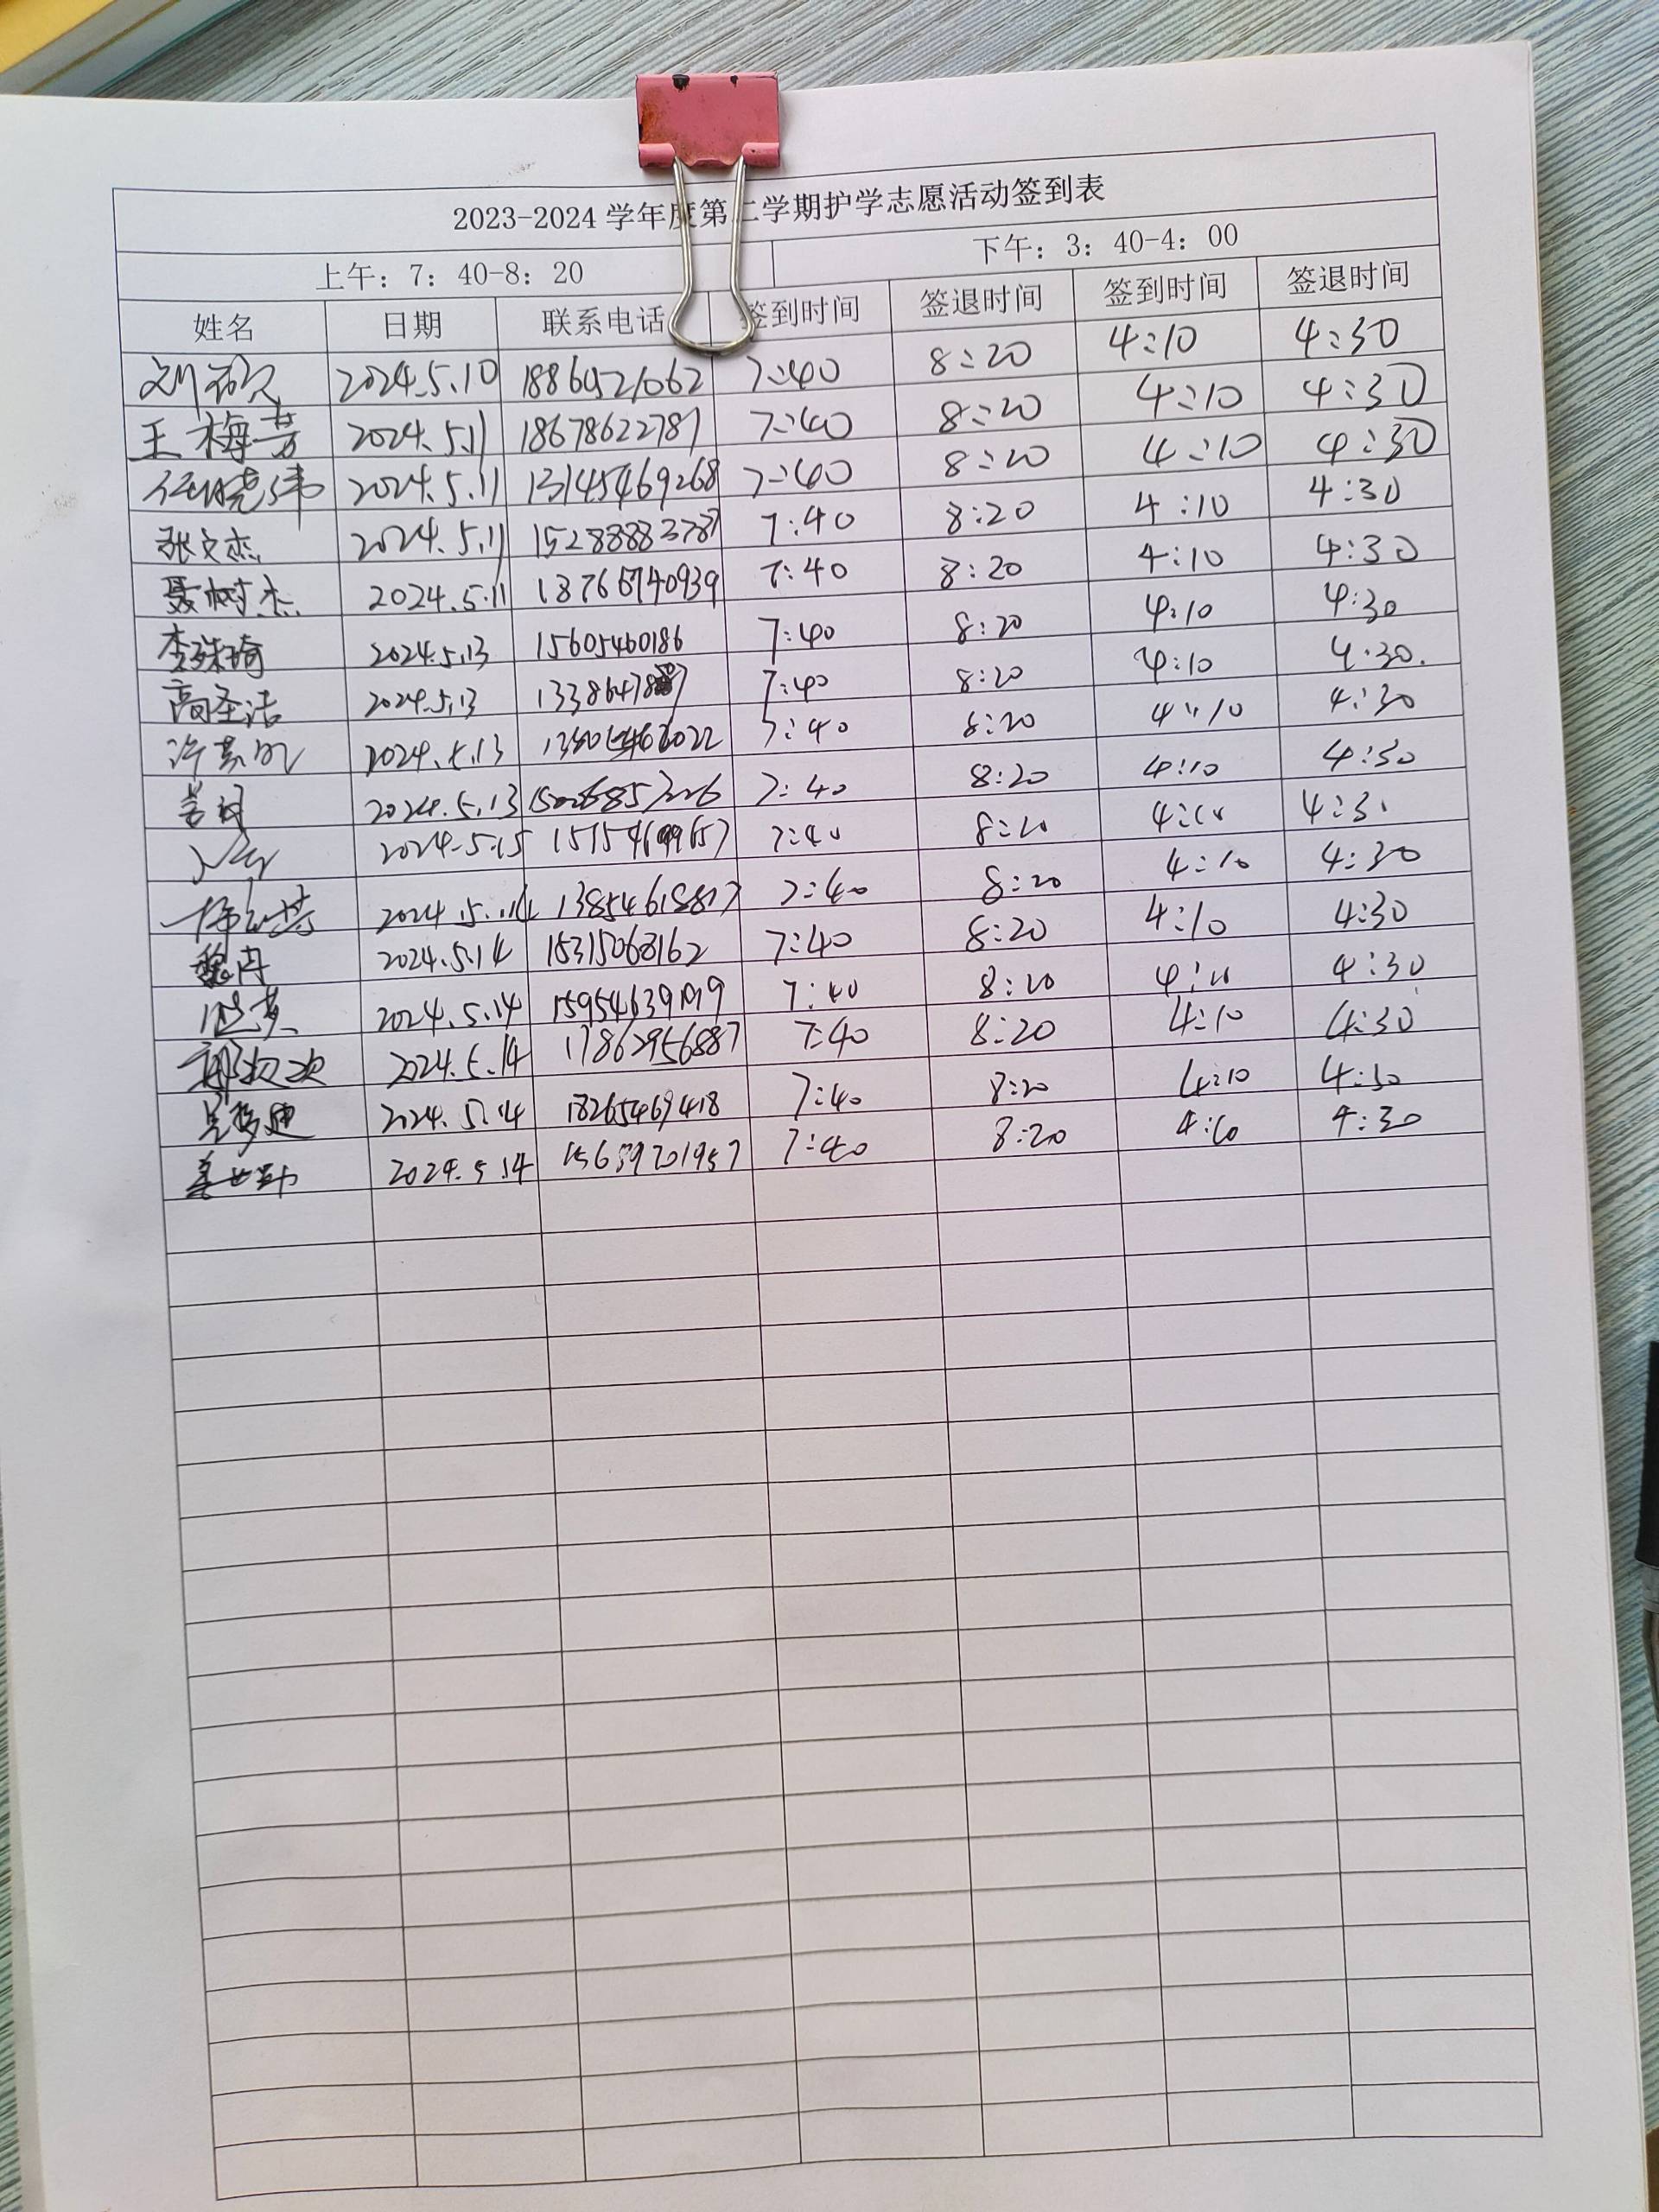 2023-2024 学年度第二学期护学志愿活动签到表
上午：7：40-8：20 下午：3：40-4：00
姓名 日期 联系电话 签到时间 签退时间 签到时间 签退时间
2024.5.10 7:40 8:20 4:10 4:30
王梅芳 2024.5.11 18678622787 7:40 8:20 4:10 4:30
任晓纬 2024.5.11 13145469268 7:40 8:20 4:10 4:30
张文杰 2024.5.11 15288883787 7:40 8:20 4:10 4:30
聂树杰 2024.5.11 7:40 8:20 4:10 4:30
李殊琦 2024.5.13 15605460186 7:40 8:20 4:10 4:30
高圣洁 2024.5.13 7:40 8:20 4:10 4:30.
2024.5.13 7:40 8:20 4:10 4:30
2024.5.13 7:40 8:20 4:10 4:30
2024.5.15 7:40 8:20 4:10 4:30
13854618817 7:40 8:20 4:10 4:30
魏丹 2024.5.14 15315068162 7:40 8:20 4:10 4:30
2024.5.14 7:40 8:20 4:10 4:30
2024.5.14 17862956887 7:40 8:20 4:10 4:30
2024.5.14 18265469418 7:40 8:20 4:10 4:30
2024.5.14 7:40 8:20 4:10 4:30